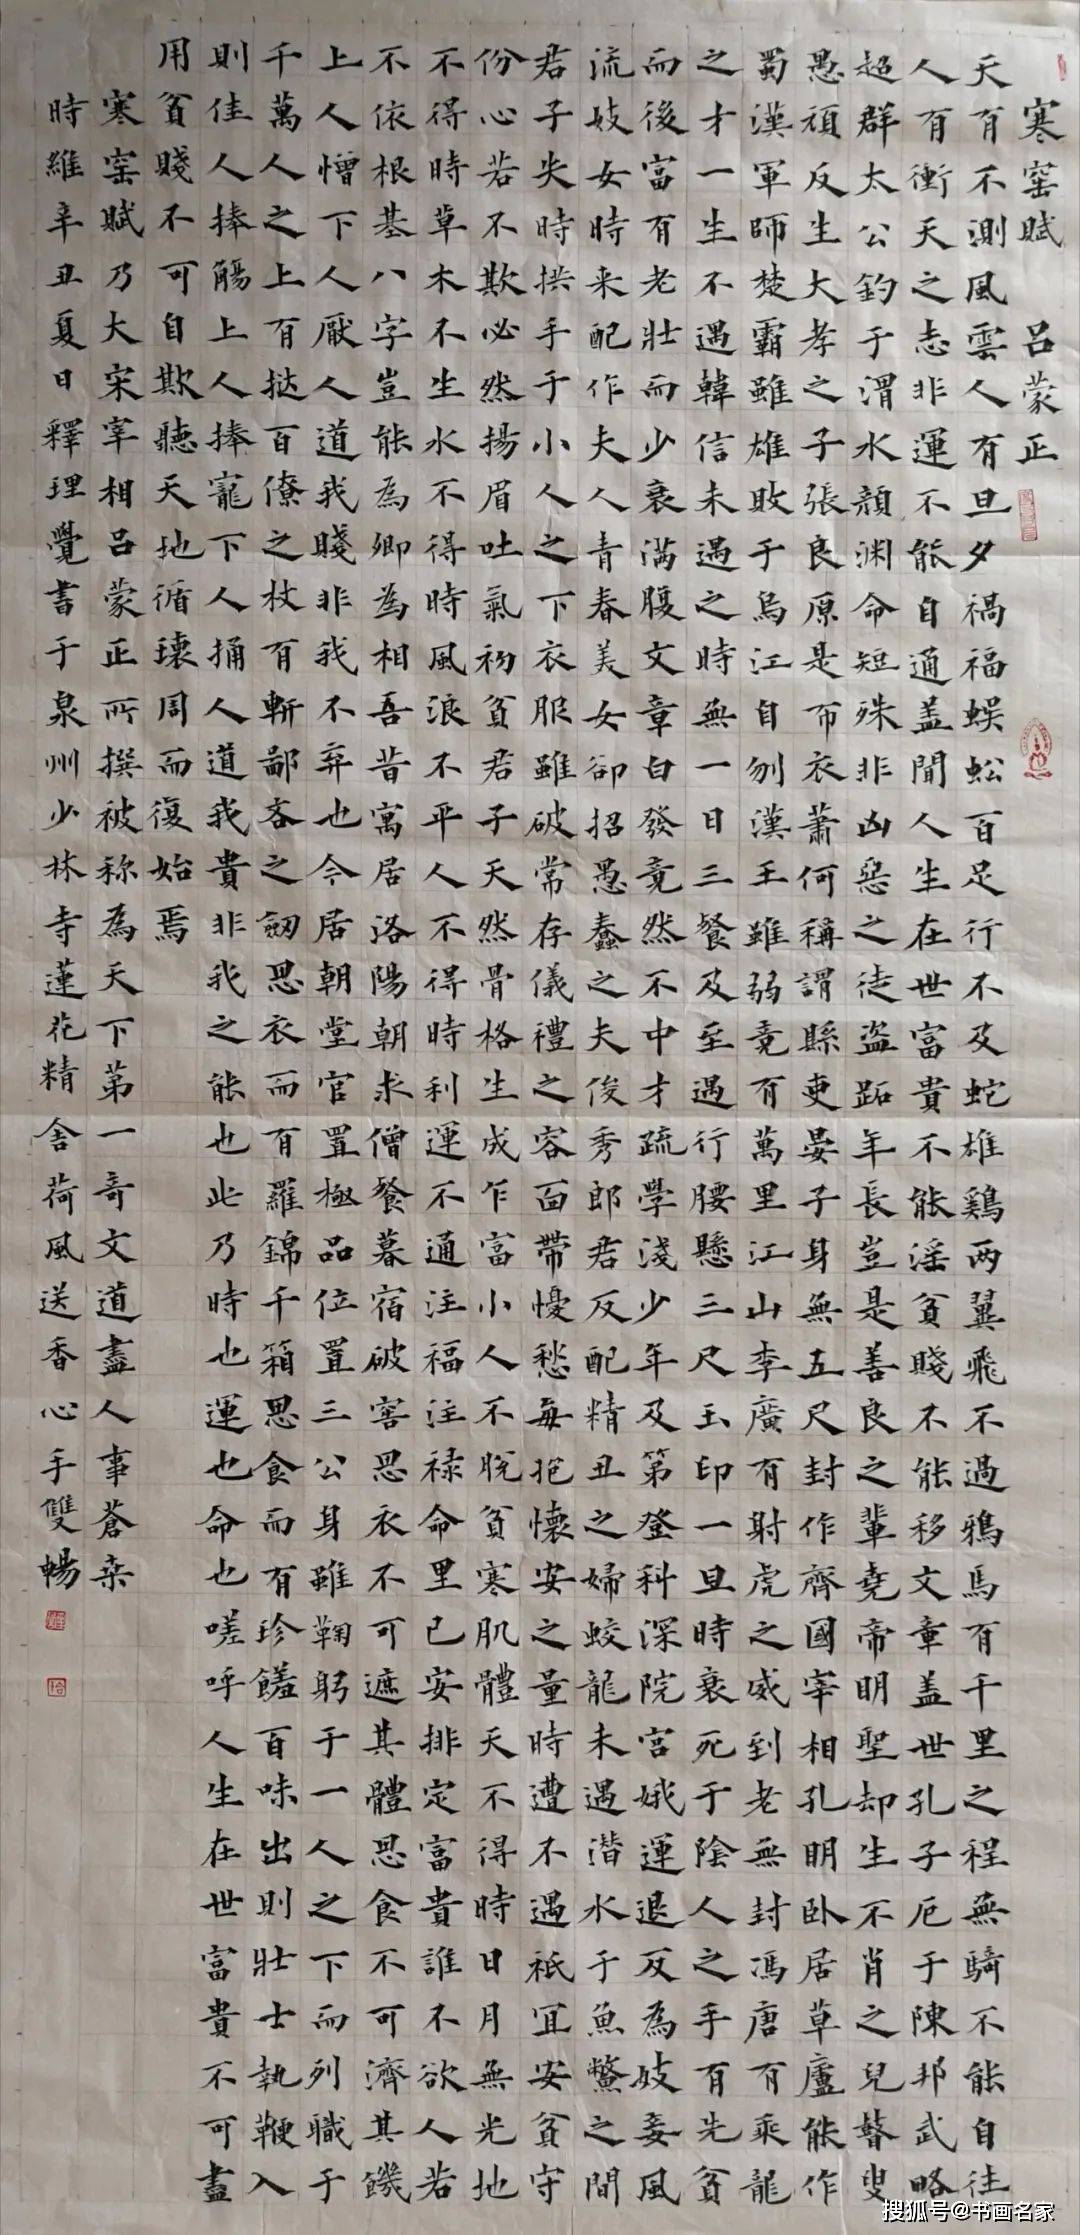 寒窰賦 呂蒙正
天有不測風雲人有旦夕禍福蜈蚣百足行不及蛇雄鷄两翼飛不過鴉馬有千里之程無騎不能自往
人有衝天之志非運不能自通盖聞人生在世富貴不能淫貧賤不能移文章盖世孔子厄于陳邦武略
超群太公釣于渭水顏渊命短殊非凶惡之徒盗跖年長豈是善良之輩堯帝明聖却生不肖之兒瞽叟
愚頑反生大孝之子張良原是布衣蕭何稱謂縣吏晏子身無五尺封作齊國宰相孔明卧居草廬能作
蜀漢軍師楚霸雖雄敗于烏江自刎漢王雖弱竟有萬里江山李廣有射虎之威到老無封馮唐有乘龍
之才一生不遇韓信未遇之時無一日三餐及至遇行腰懸三尺玉印一旦時衰死于陰人之手有先貧
而後富有老壯而少衰滿腹文章白發竟然不中才疏學淺少年及第登科深院宮娥運退反為妓妾風
流妓女時来配作夫人青春美女卻招愚蠢之夫俊秀郎君反配精丑之婦蛟龍未遇潜水于魚鱉之間
君子失時拱手于小人之下衣服雖破常存儀禮之容面帶懮愁每抱懷安之量時遭不遇祇宜安貧守
份心若不欺必然揚眉吐氣初貧君子天然骨格生成乍富小人不脱貧寒肌體天不得時日月無光地
不得時草木不生水不得時風浪不平人不得時利運不通注福注禄命里已安排定富貴誰不欲人若
不依根基八字豈能為卿為相吾昔寓居洛陽朝求僧餐暮宿破窖思衣不可遮其體思食不可濟其饑
上人憎下人厭人道我賤非我不弃也今居朝堂官置極品位置三公身雖鞠躬于一人之下而列職于
千萬人之上有撻百僚之杖有斬鄙吝之劒思衣而有羅錦千箱思食而有珍饈百味出則壯士執鞭入
則佳人捧觴上人捧寵下人擁人道我貴非我之能也此乃時也運也命也嗟呼人生在世富貴不可盡
用貧賤不可自欺聽天地循環周而復始焉
寒窑賦乃大宋宰相吕蒙正所撰被称為天下第一奇文道盡人事蒼桑
時維辛丑夏日釋理覺書于泉州少林寺蓮花精舍荷風送香心手雙暢
搜狐号@书画名家